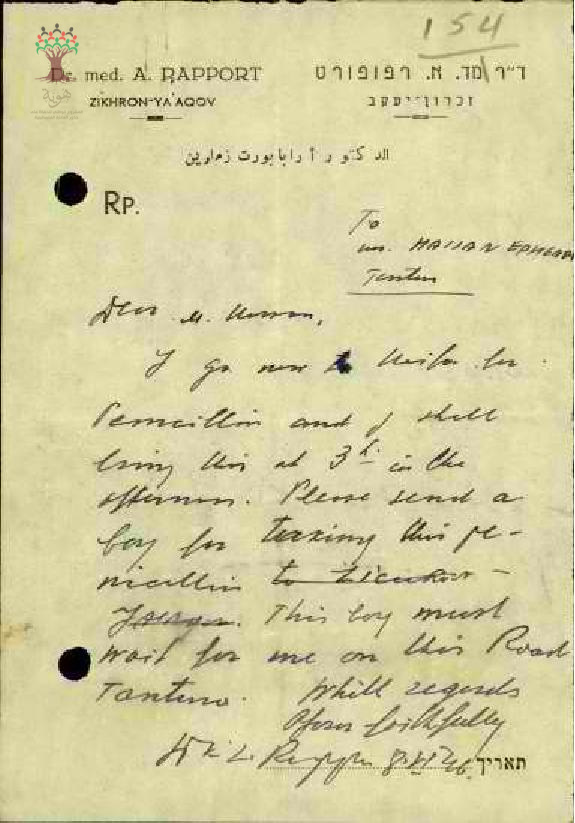 154
Dr. med. A. RAPPORT
ד"ר מד. א. רפופורט
ZIKHRON-YA'AQOV
זכרון־יעקב
الدكتور أ رابابورت زمارين
هوية
RP.
To
Mr. HASSAN
Tantura
Dear Mr. Hassan,
I go now to Haifa for
Penicillin and I shall
bring this at 3 h. in the
afternoon. Please send a
boy for taking this pe-
nicillin to Zicron-
. This boy must
wait for me on this Road
Tantura. Whill regards
Yours faithfully
46 תאריך